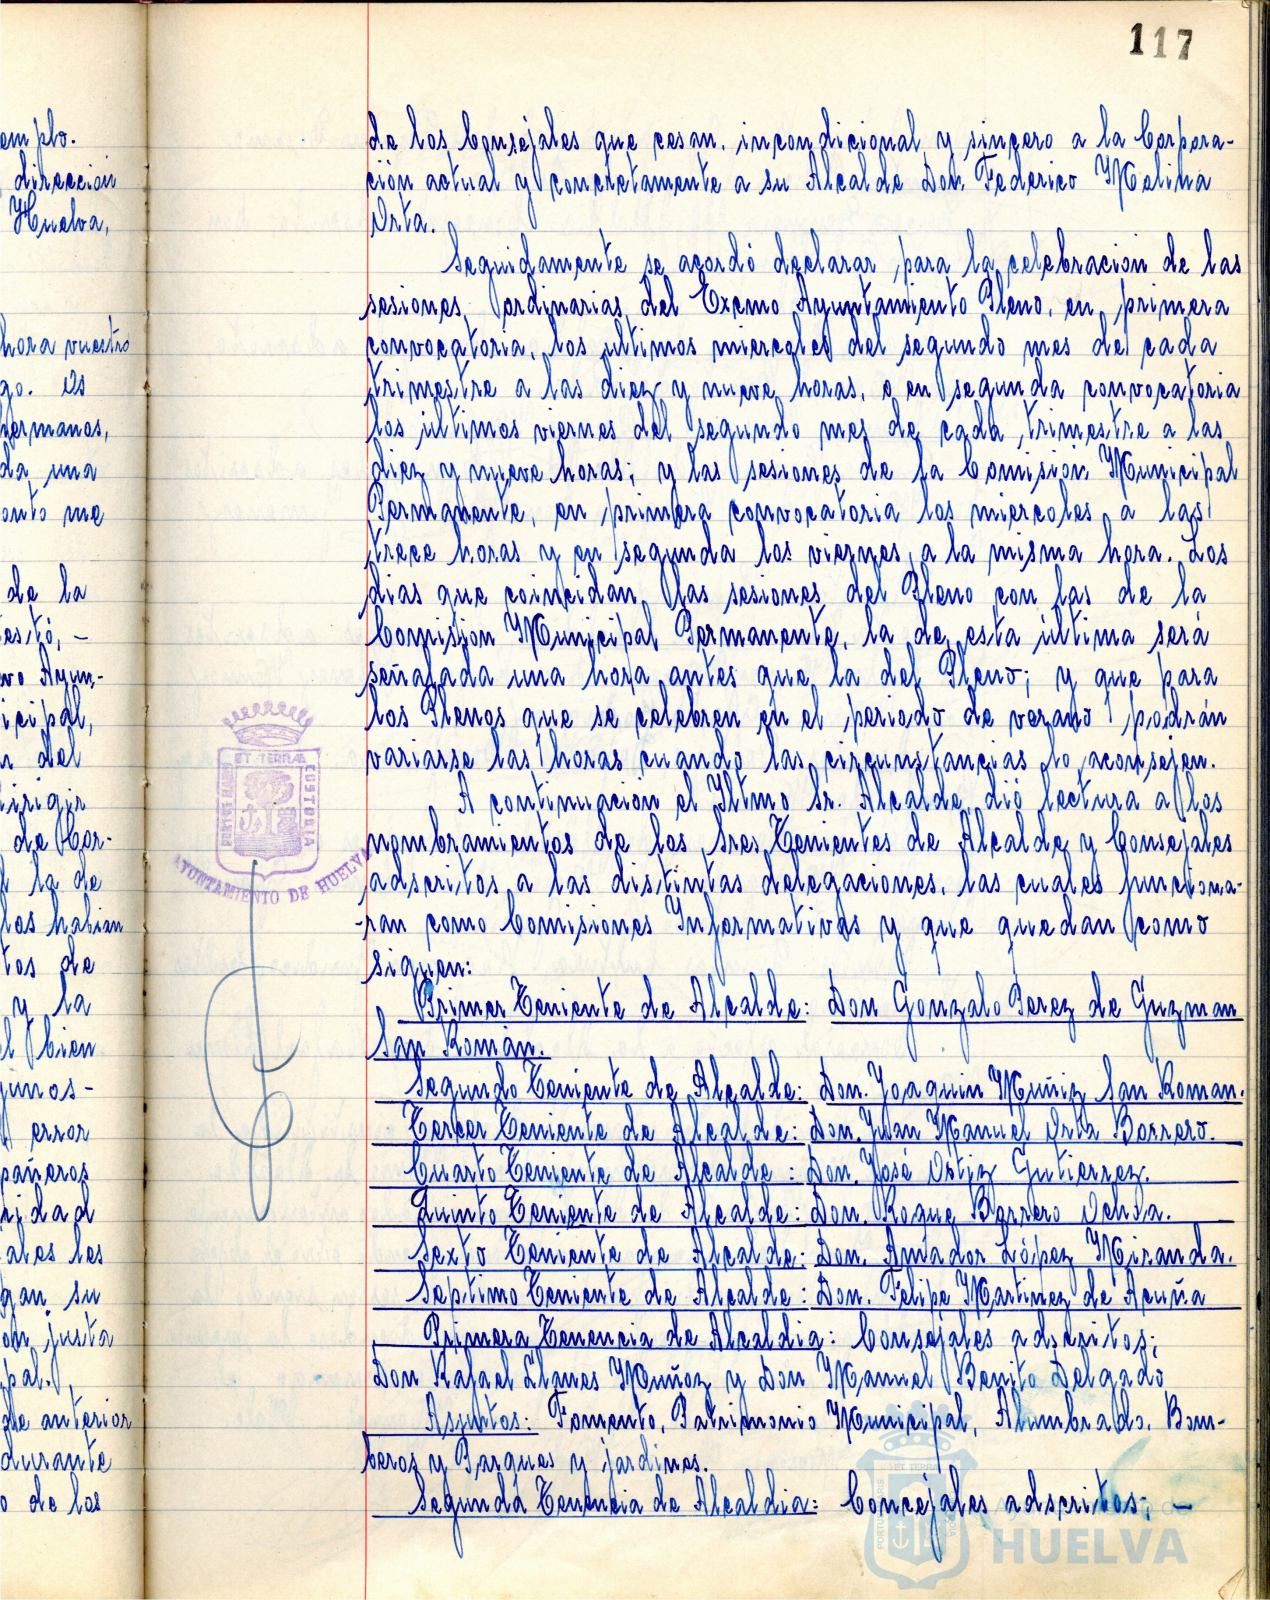 117
emplo.
dirección
Huelva,
hora vuestro
go. Os
hermanos,
da una
onto me
de la
estó, -
vo Ayun-
icipal,
n del
irigir
de Cor-
la de
los habian
tos de
y la
el bien
jinos-
error
pañeros
ridad
ales les
gan su
on justa
pal.
de anterior
durante
o de los
de los Consejales que cesan, incondicional y sincero a la Corpora-
ción actual y concretamente a su Alcalde Don. Federico Molina
Orta.
Seguidamente se acordó declarar para la celebracion de las
sesiones ordinarias del Excmo Ayuntamiento Pleno, en primera
convocatoria, los ultimos miercoles del segundo mes de cada
trimestre a las diez y nueve horas, o en segunda convocatoria
los ultimos viernes del segundo mes de cada trimestre a las
diez y nueve horas; y las sesiones de la Comisión Municipal
Permanente, en primera convocatoria los miercoles a las
trece horas y en segunda los viernes a la misma hora. Los
dias que coincidan las sesiones del Pleno con las de la
Comission Municipal Permanente, la de esta última será
señalada una hora antes que la del Pleno; y que para
los Plenos que se celebren en el periodo de verano podrán
variarse las horas cuando las circunstancias lo aconsejen.
A continuacion el Iltmo Sr. Alcalde dió lectura a los
nombramientos de los Sres Tenientes de Alcalde y Consejales
adscritos a las distintas delegaciones, las cuales funciona-
-ran como Comisiones Informativas y que quedan como
siguen:
Primer Teniente de Alcalde: Don Gonzalo Perez de Guzman
San Román.
Segundo Teniente de Alcalde: Don. Joaquin Muñiz San Roman.
Tercer Teniente de Alcalde: Don. Juan Manuel Orta Borrero.
Cuarto Teniente de Alcalde: Don. José Ortiz Gutierrez.
Quinto Teniente de Alcalde: Don. Roque Barrero Ochoa.
Sexto Teniente de Alcalde: Don. Amador López Miranda.
Septimo Teniente de Alcalde: Don. Felipe Martinez de Acuña
Primera Tenencia de Alcaldia: Consejales adscritos;
Don Rafael Llanes Muñoz y Don Manuel Benito Delgado
Asuntos: Fomento, Patrimonio Municipal, Alumbrado, Bom-
beros y Parques y jardines.
Segunda Tenencia de Alcaldia: Concejales adscritos; -
ET TERRAE CUSTODIA
PORTUS MARIS
AYUNTAMIENTO DE HUELVA
Ayuntamiento de
HUELVA